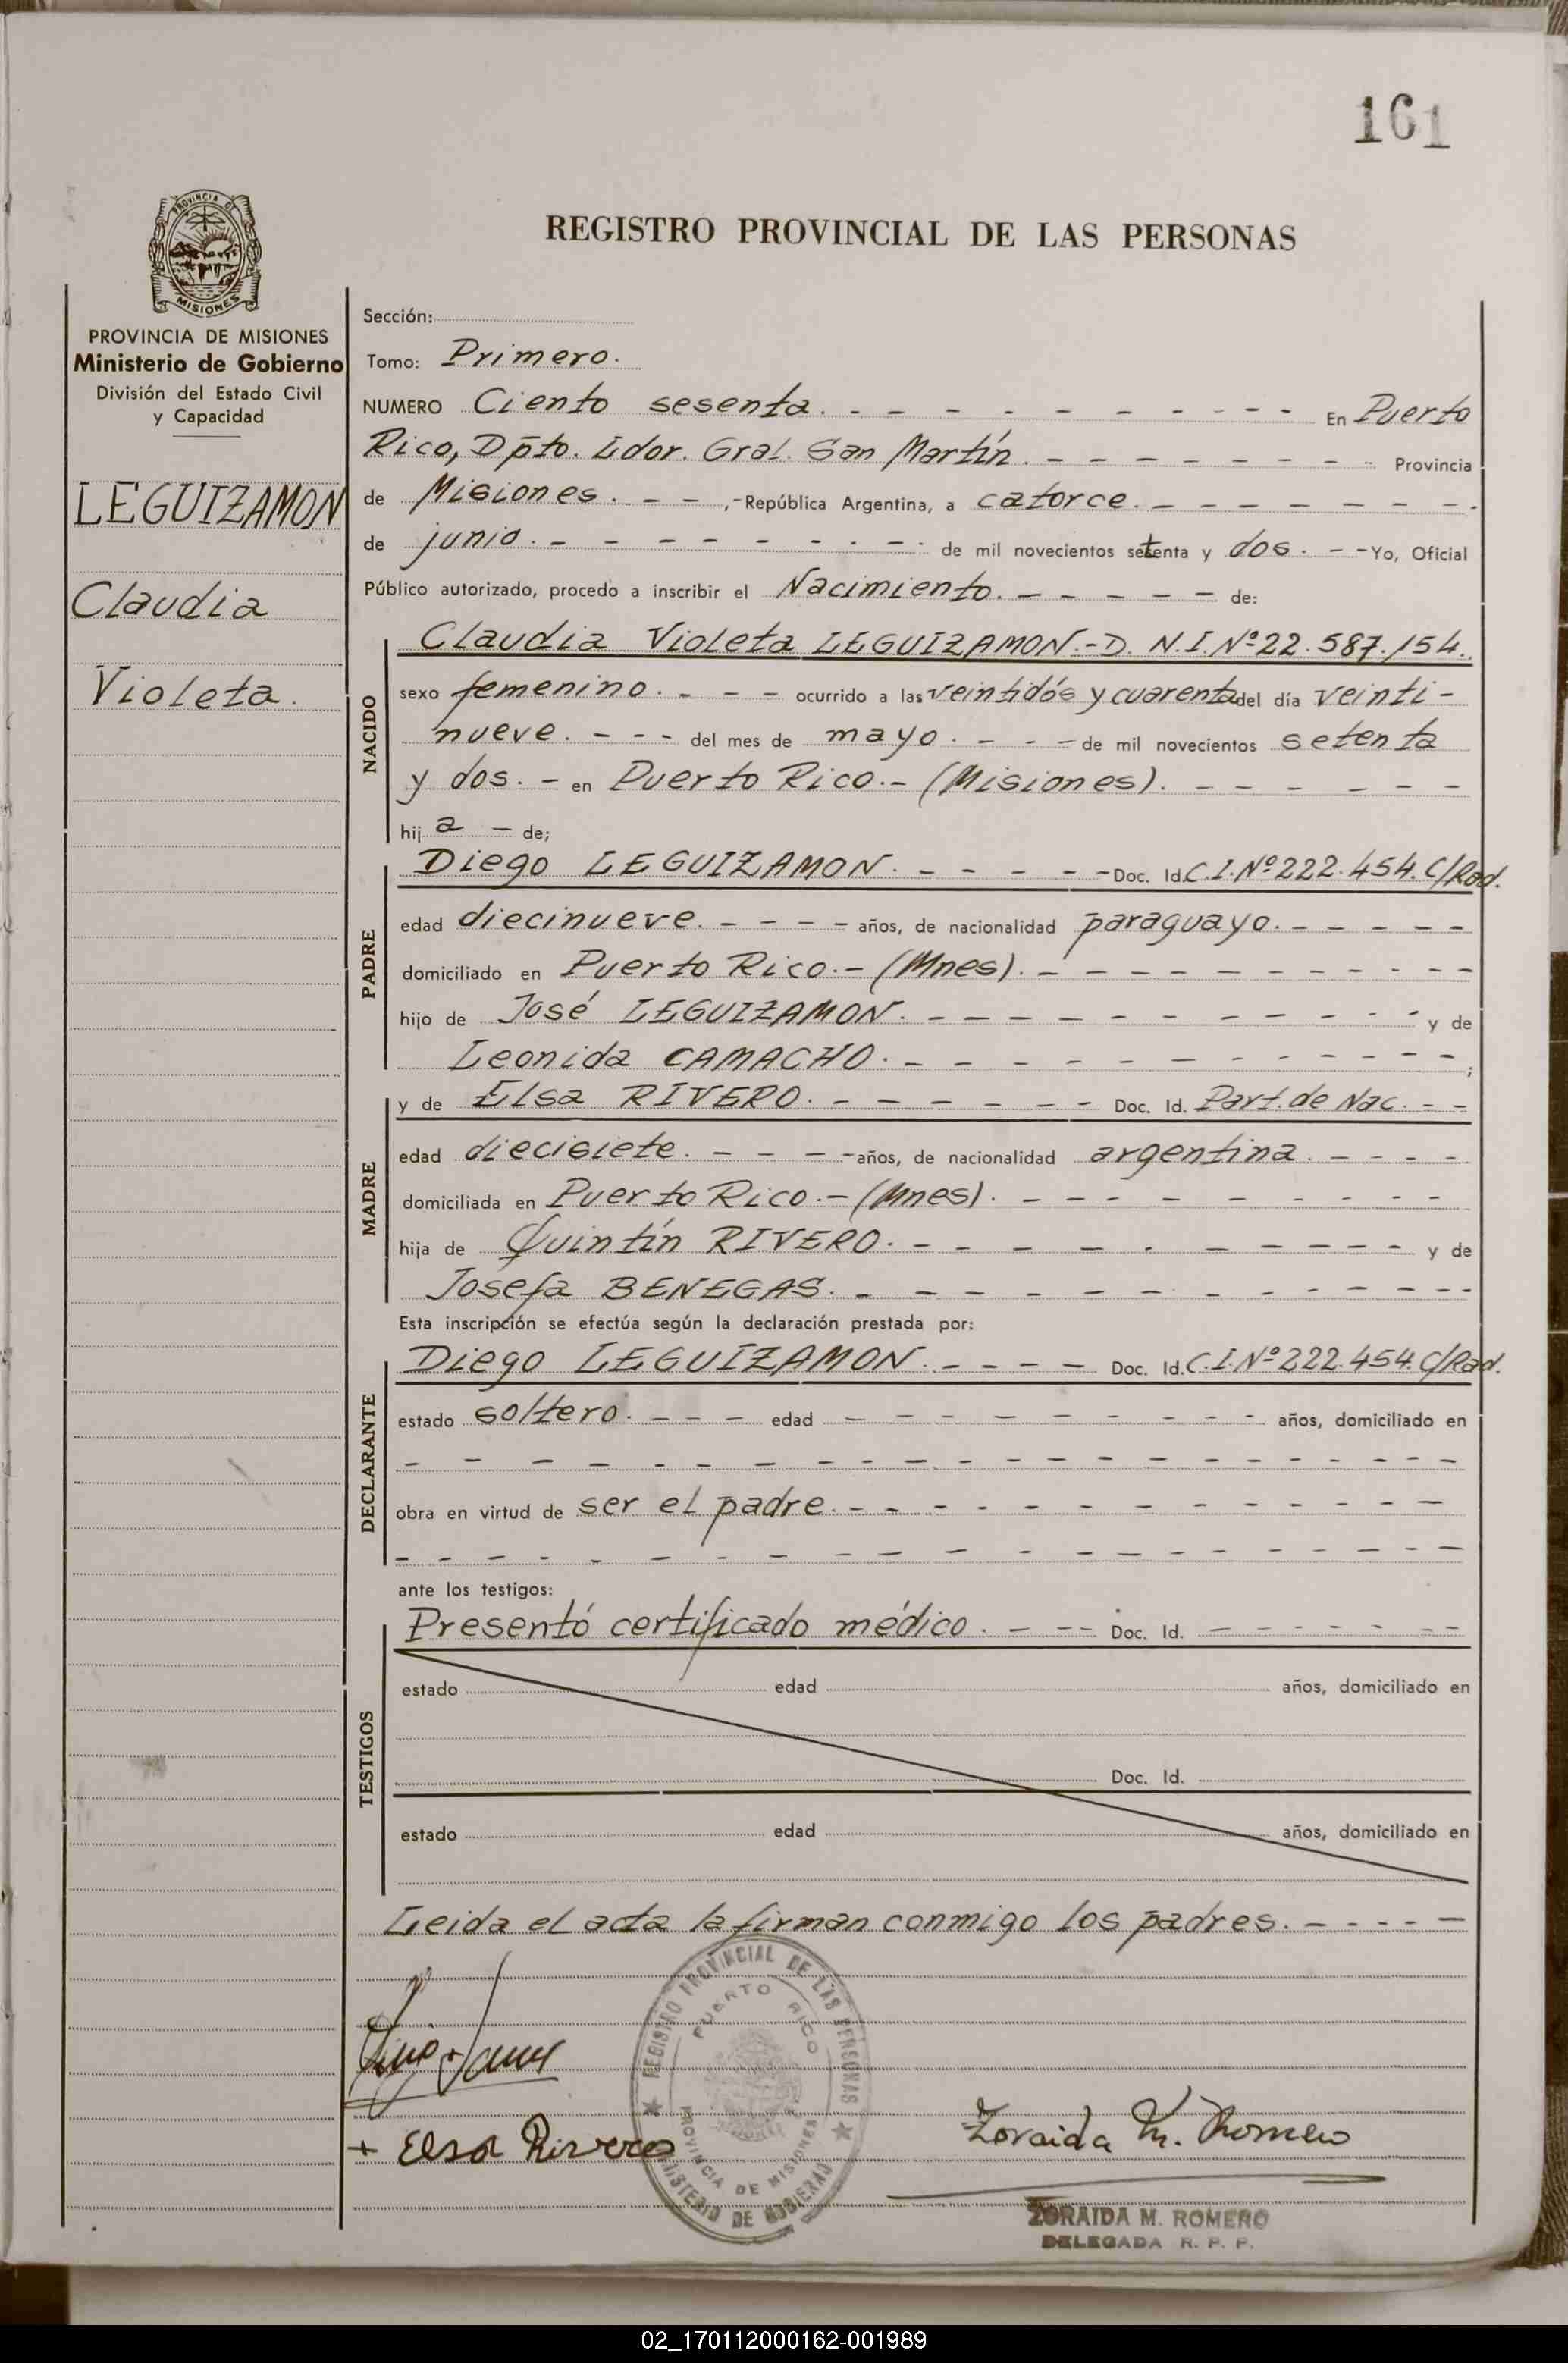 161
PROVINCIA DE
MISIONES
REGISTRO PROVINCIAL DE LAS PERSONAS
PROVINCIA DE MISIONES
Ministerio de Gobierno
División del Estado Civil
y Capacidad
LEGUIZAMON
Claudia
Violeta.
Sección:
Tomo: Primero.
NUMERO Ciento sesenta. - - - - - - - - - - En Puerto
Rico, Dpto. Ldor. Gral. San Martín. - - - - - - - - Provincia
de Misiones. - - ,-República Argentina, a catorce. - - - - - - - -
de junio. - - - - - - - - - de mil novecientos setenta y dos. - - Yo, Oficial
Público autorizado, procedo a inscribir el Nacimiento. - - - - - de:
NACIDO
Claudia Violeta LEGUIZAMON.-D. N.I.Nº22.587.154.
sexo femenino. - - - ocurrido a las veintidós y cuarenta del día veinti-
nueve. - - - del mes de mayo. - - - de mil novecientos setenta
y dos. - en Puerto Rico.- (Misiones). - - - - - -
hij a - de;
PADRE
Diego LEGUIZAMON. - - - - - Doc. Id. C.I.Nº222.454. C/Rad.
edad diecinueve. - - - - años, de nacionalidad paraguayo. - - - - -
domiciliado en Puerto Rico.- (Mnes). - - - - - - - - - - -
hijo de José LEGUIZAMON. - - - - - - - - - - y de
Leonida CAMACHO. - - - - - - - - - - - - ;
MADRE
y de Elsa RIVERO. - - - - - - - Doc. Id. Part. de Nac. - -
edad diecisiete. - - - - años, de nacionalidad argentina. - - - -
domiciliada en Puerto Rico.- (Mnes). - - - - - - - - - -
hija de Quintín RIVERO. - - - - - - - - - - - y de
Josefa BENEGAS. - - - - - - - - - - - - -
Esta inscripción se efectúa según la declaración prestada por:
DECLARANTE
Diego LEGUIZAMON. - - - - Doc. Id. C.I.Nº222.454. C/Rad.
estado soltero. - - - edad - - - - - - - - - años, domiciliado en
- - - - - - - - - - - - - - - - - - - -
obra en virtud de ser el padre. - - - - - - - - - - - - -
- - - - - - - - - - - - - - - - - - - -
ante los testigos:
TESTIGOS
Presentó certificado médico. - - - Doc. Id. - - - - - -
estado edad años, domiciliado en
Doc. Id.
estado edad años, domiciliado en
Leida el acta la firman conmigo los padres. - - - - -
REGISTRO PROVINCIAL DE LAS PERSONAS
PUERTO RICO
PROVINCIA DE MISIONES
MINISTERIO DE GOBIERNO
+ Elsa Rivero
Zoraida M. Romero
ZORAIDA M. ROMERO
DELEGADA R. P. P.
02_170112000162-001989